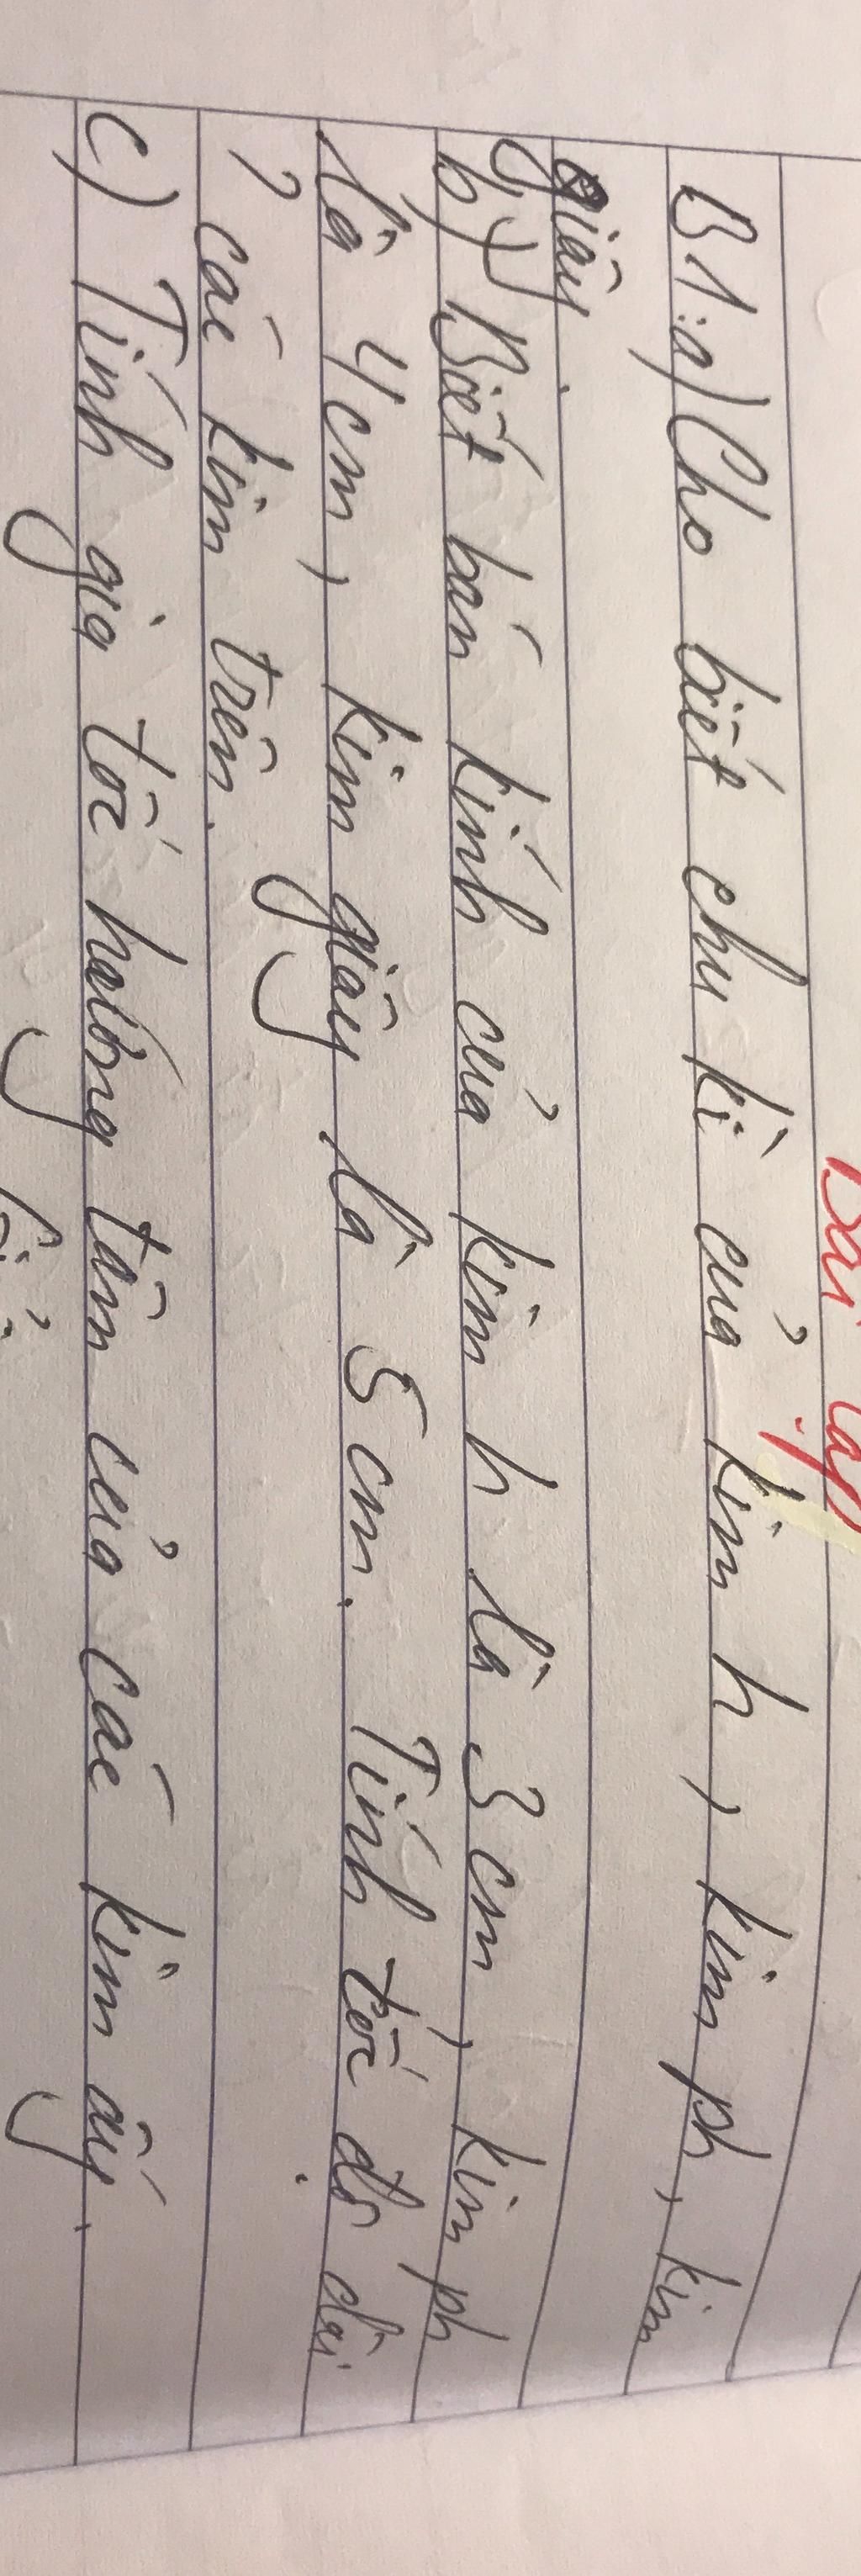 Bài tập
B1:a) Cho biết chu kì của kim h, kim ph, kim
giây.
b) Biết bán kính của kim h là 3 cm, kim ph
là 4cm, kim giây là 5 cm. Tính tốc độ dài
? các kim trên.
c) Tính gia tốc hướng tâm của các kim ấy.